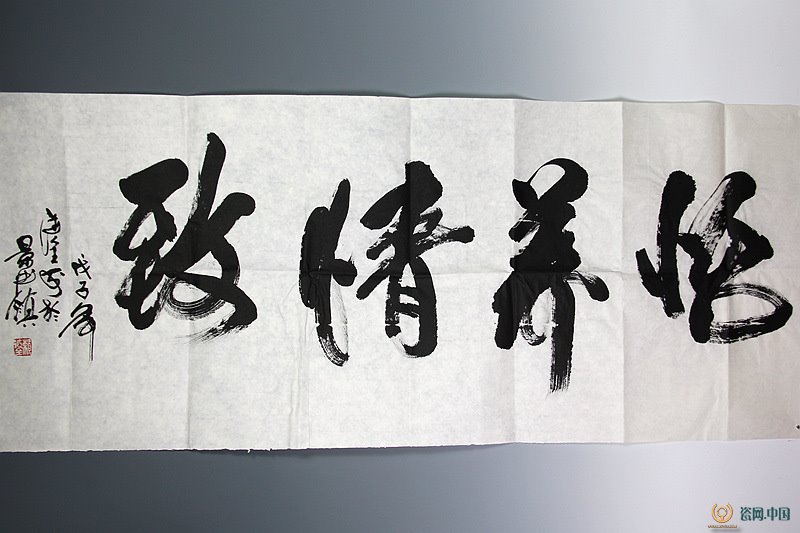 怡养情致
戊子年
书于
景德镇
瓷网.中国